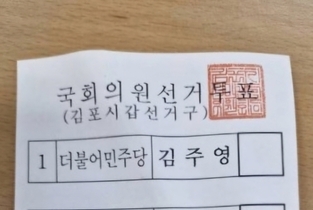 국회의원선거투표
(김포시갑선거구)
1 더불어민주당 김주영